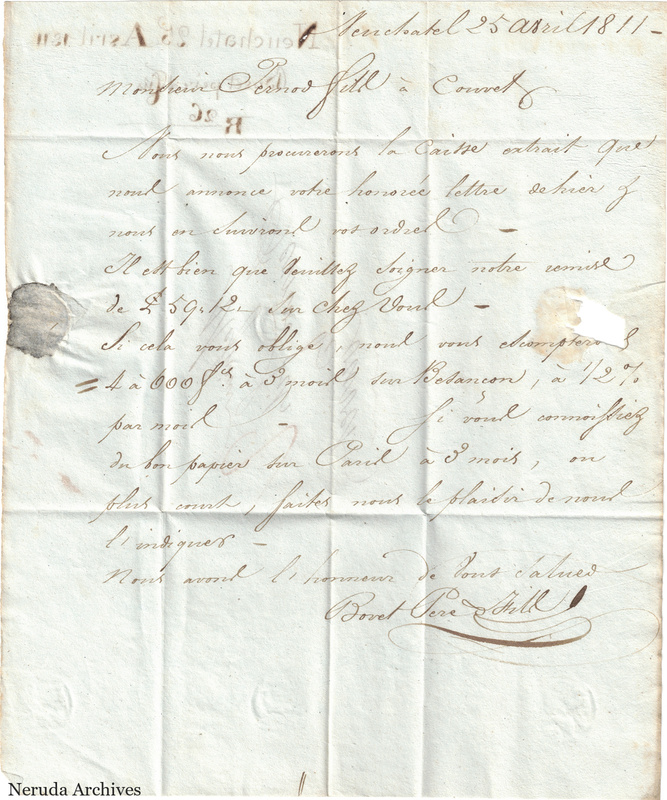 Neuchatel 25 avril 1811 -
Monsieur Pernod fils à Couvet
Nous nous procurerons la Caisse extrait que
nous annonce votre honorée lettre de hier &
nous en suivrons vos ordres -
Il est bien que veuillez soigner notre remise
de £ 59,,12,, sur chez vous -
Si cela vous oblige, nous vous escompterons
= 4 à 600 fs à 3 mois sur Besançon, à 1/2 %
par mois - Si vous connoissiez
du bon papier sur Paris à 3 mois, ou
plus court, faites nous le plaisir de nous
l'indiquer -
Nous avons l'honneur de vous saluer
Bovet Pere & Fils
Neruda Archives